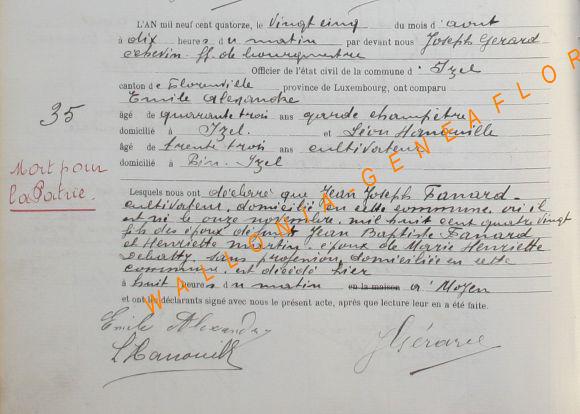 L'AN mil neuf cent quatorze, le vingt cinq du mois d'août
à dix heures du matin par devant nous Joseph Gerard
échevin ff. de bourgmestre
Officier de l'état civil de la commune d'Izel
canton de Florenville province de Luxembourg, ont comparu
Emile Alexandre
âgé de quarante trois ans garde champêtre
domicilié à Izel et Léon Hanouille
âgé de trente trois ans cultivateur
domicilié à Izel
35
Mort pour
la Patrie.
Lesquels nous ont déclaré que Jean Joseph Fanard
cultivateur, domicilié en cette commune, où il
est né le onze novembre mil huit cent quatre vingt
fils des époux défunt Jean Baptiste Fanard
et Henriette Martin, époux de Marie Henriette
sans profession, domiciliée en cette
commune, est décédé hier
à huit heures du matin en la maison à Moyen
et ont les déclarants signé avec nous le présent acte, après que lecture leur en a été faite.
Emile Alexandre
L Hanouille
J Gérard
WALLONIA-GENEAFLOR